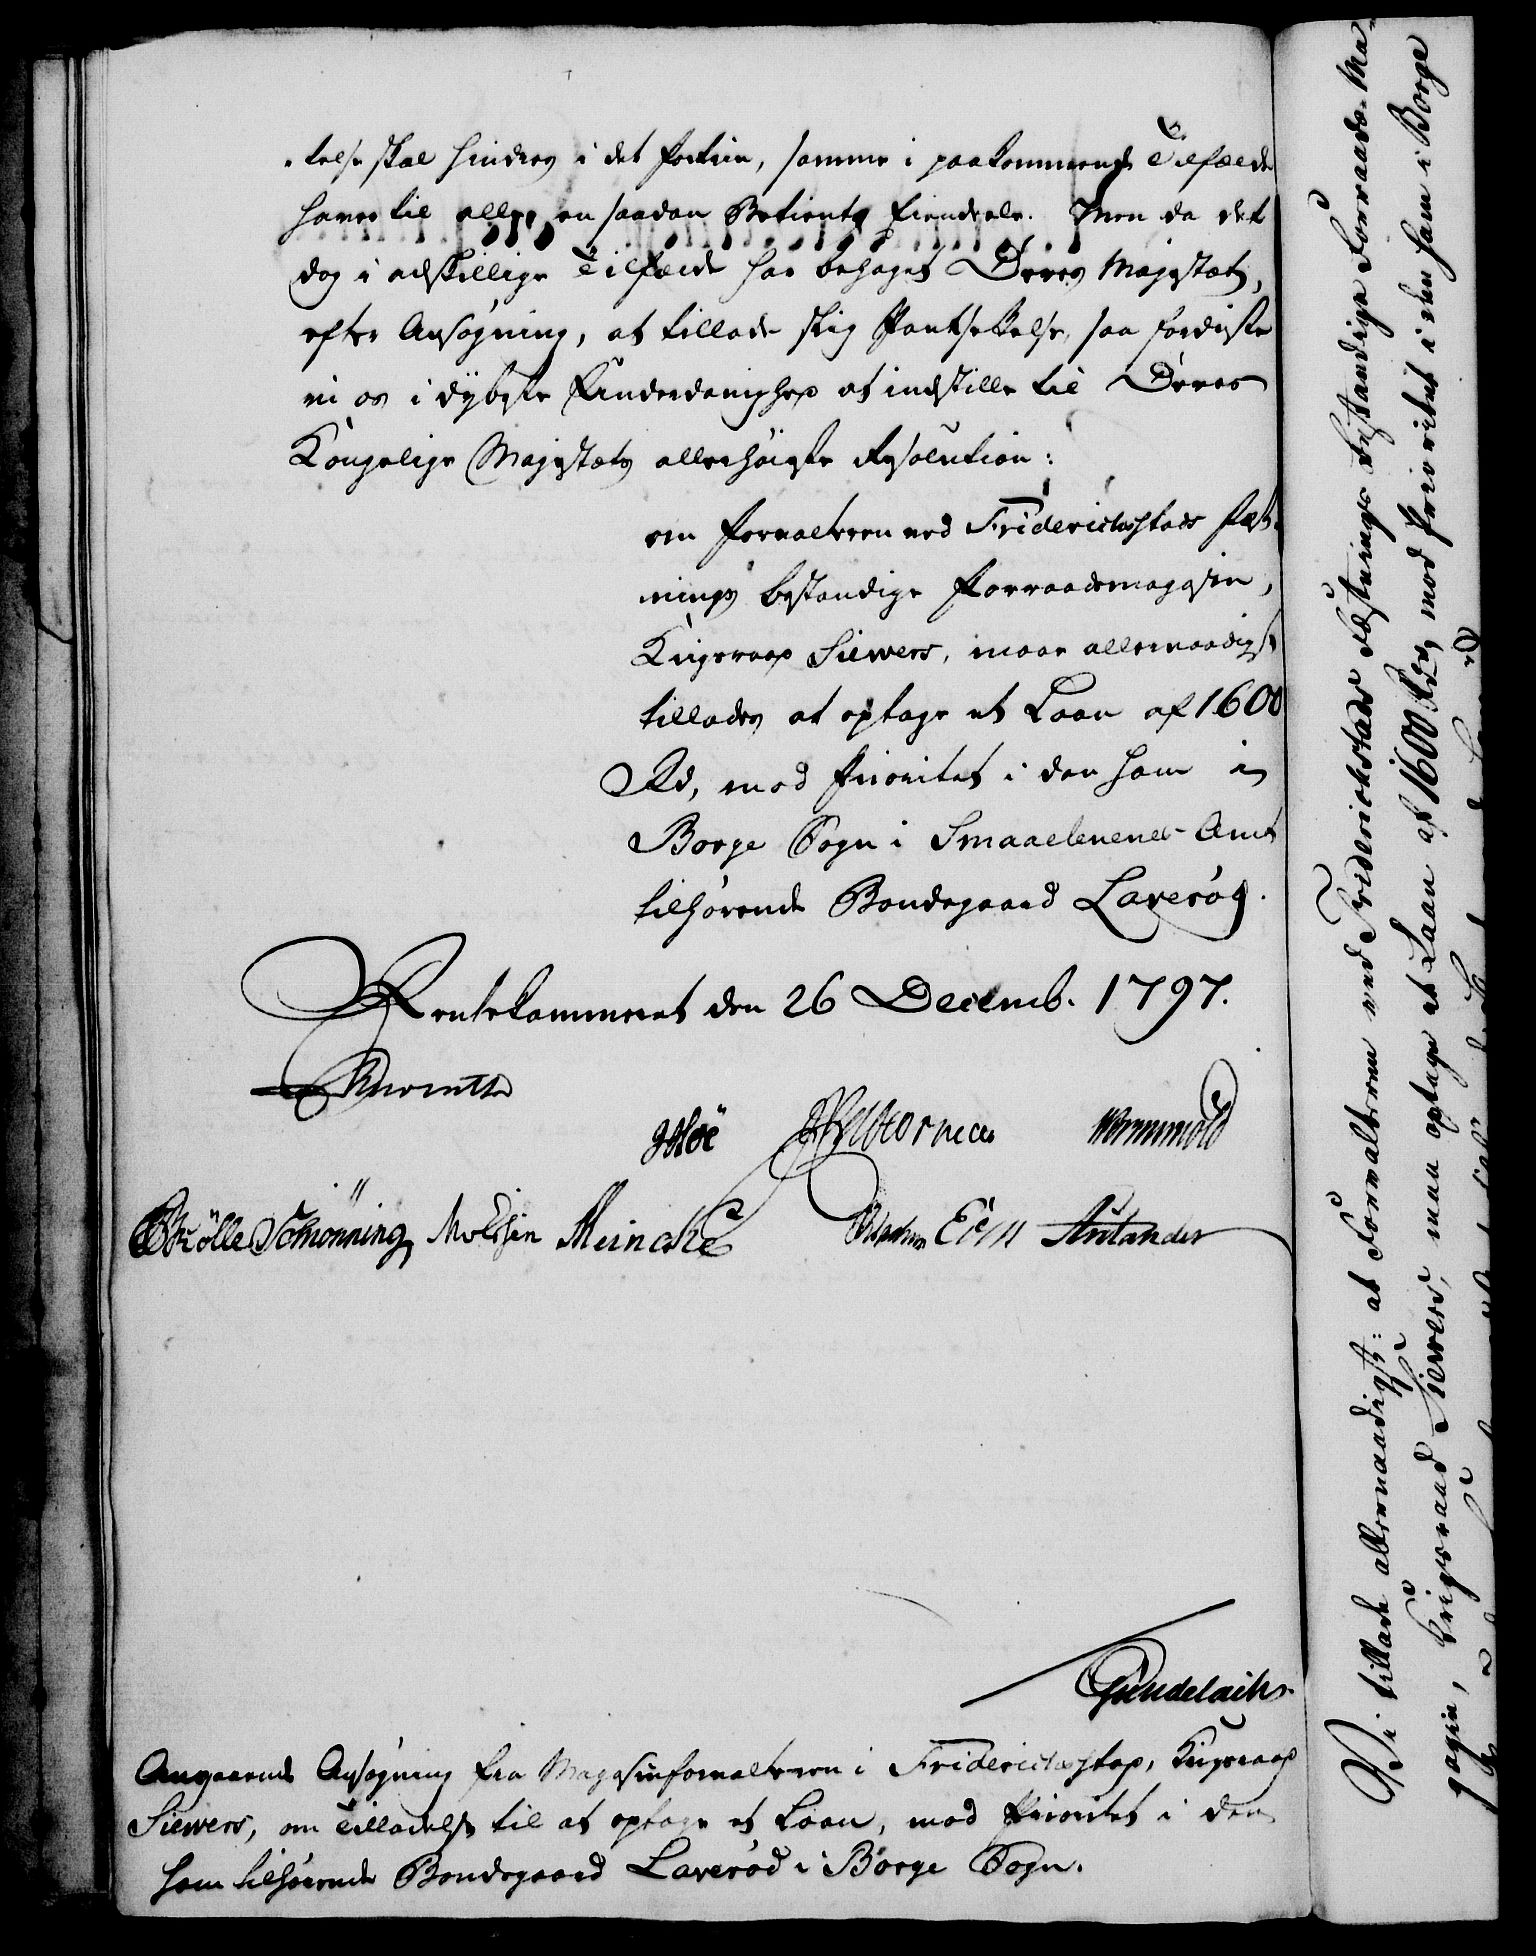 -telse skal hindres i det fortrin, samme i paakommende Tilfælde
haver til alle en saadan Betients Eiendeele. Men da det
dog i adskillige Tilfælde har behaget Deres Majestæt,
efter Ansøgning, at tillade slig Pantsettelse, saa fordriste
vi os i dybeste Underdanighed at indstille til Deres
Kongelige Majestæts allerhøieste Resolution:
om Forvalteren ved Fridericksstads Fæst-
nings bestandige Forraadsmagasin,
Krigsraad Siewers, maae allernaadigst
tillades at optage et Laan af 1600
Rd, mod Prioritet i den ham i
Borge Sogn i Smaaelenenes Amt
tilhørende Bondegaard Laverød.
Rentekammeret den 26 Decemb. 1797.
Reventlow
Hoë Wormskiold
Schønning Meincke Eëm Rülander
Gundelach
Angaaende Ansøgning fra Magasinforvalteren i Friderichstad, Krigsraad
Siewers, om Tilladelse til at optage et Laan, mod Prioritet i den
ham tilhørende Bondegaard Laverød i Borge Sogn.
Vi tillade allernaadigst: at Forvalteren ved Friderichstads Fæstnings bestandige Forraads-Ma-
gasin, Krigsraad Siewers, maa optage et Laan af 1600 Rdr, mod Prioritet i den ham i Borge